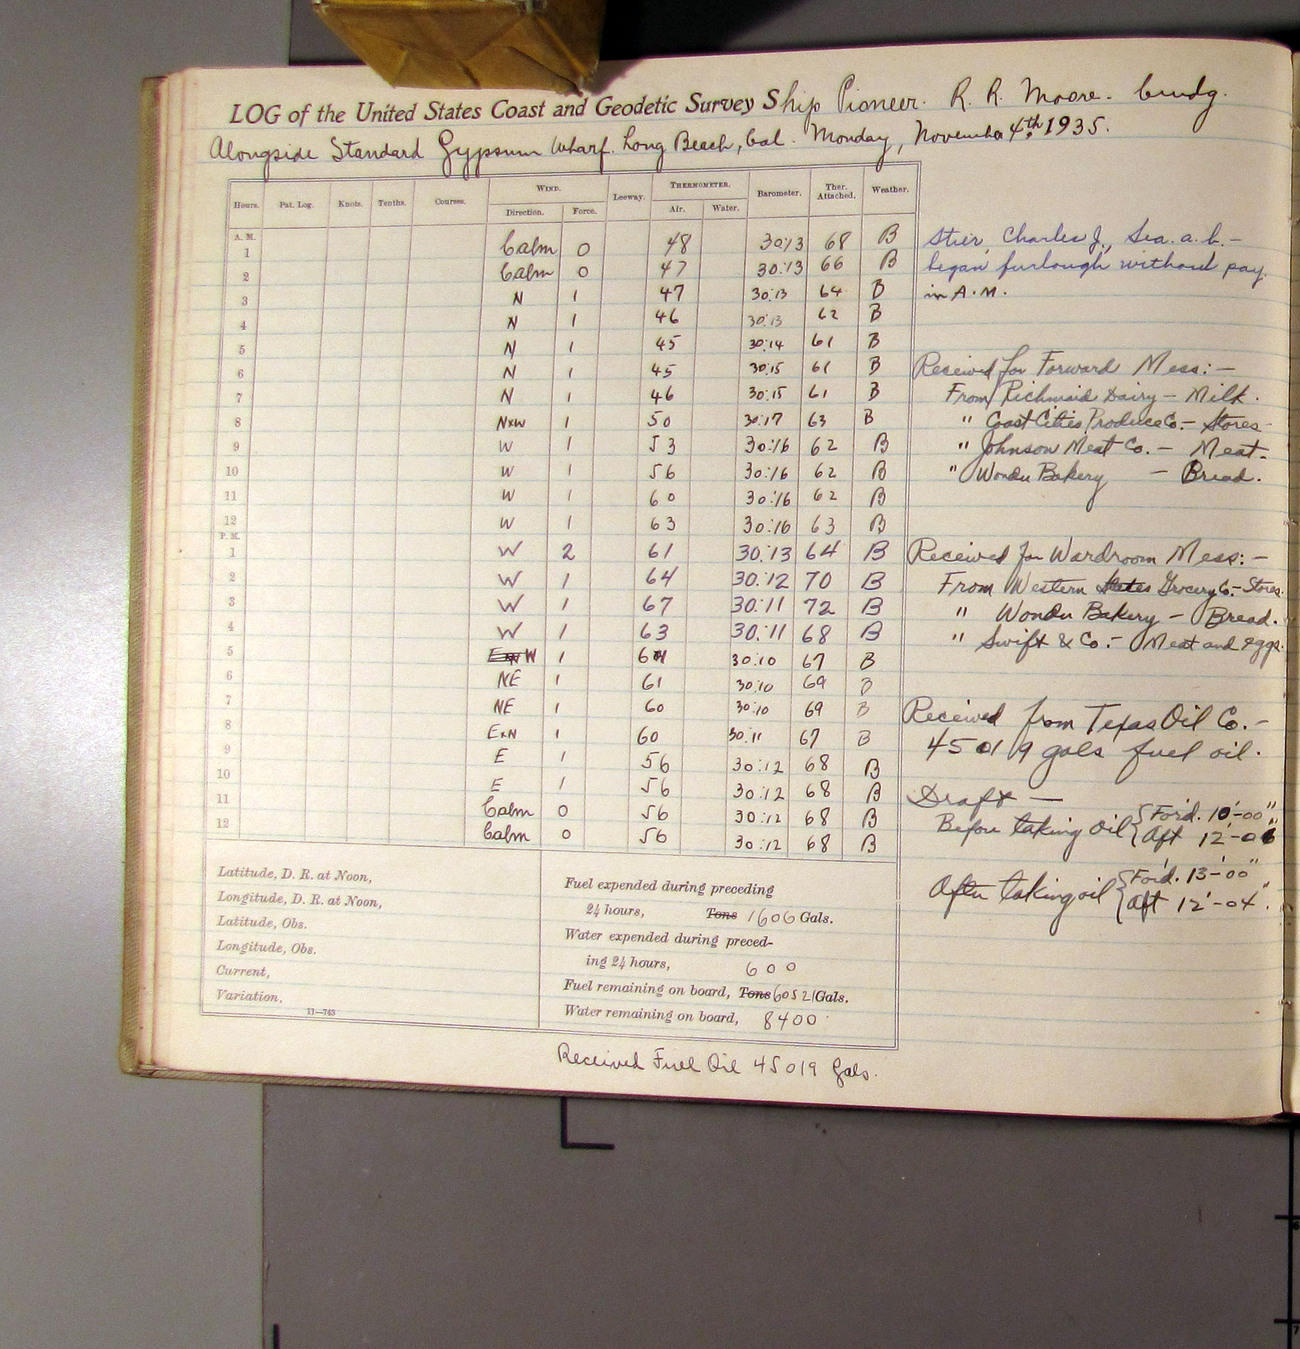 LOG of the United States Coast and Geodetic Survey Ship Pioneer. R. R. Moore. Comdg.
Alongside Standard Gypsum Wharf. Long Beach, Cal. Monday, November 4th, 1935.
Hours. Pat. Log. Knots. Tenths. Courses. WIND. Direction. Force. Leeway. THERMOMETER. Air. Water. Barometer. Ther. Attached. Weather.
A. M.
1 Calm 0 48 30:13 68 B
2 Calm 0 47 30:13 66 B
3 N 1 47 30:13 64 B
4 N 1 46 30:13 62 B
5 N 1 45 30:14 61 B
6 N 1 45 30:15 61 B
7 N 1 46 30:15 61 B
8 NxW 1 50 30:17 63 B
9 W 1 53 30:16 62 B
10 W 1 56 30:16 62 B
11 W 1 60 30:16 62 B
12 W 1 63 30:16 63 B
P. M.
1 W 2 61 30:13 64 B
2 W 1 64 30:12 70 B
3 W 1 67 30:11 72 B
4 W 1 63 30:11 68 B
5 W 1 30:10 67 B
6 NE 1 61 30:10 69 B
7 NE 1 60 30:10 69 B
8 ExN 1 60 30:11 67 B
9 E 1 56 30:12 68 B
10 E 1 56 30:12 68 B
11 Calm 0 56 30:12 68 B
12 Calm 0 56 30:12 68 B
Stier, Charles J., Sea. a. b. –
began furlough without pay
in A.M.
Received for Forward Mess:–
From Richmaid Dairy – Milk.
" Coast Cities Produce Co.– Stores.
" Johnson Meat Co. – Meat.
" Wonder Bakery – Bread.
Received for Wardroom Mess:–
From Western States Grocery Co.– Stores.
" Wonder Bakery – Bread.
" Swift & Co.– Meat and eggs.
Received from Texas Oil Co.–
45019 gals fuel oil.
Draft —
Before taking oil { For'd. 10'-00"
{ Aft 12'-06
After taking oil { For'd. 13'-00"
{ Aft 12'-04".
Latitude, D. R. at Noon,
Longitude, D. R. at Noon,
Latitude, Obs.
Longitude, Obs.
Current,
Variation,
11—743
Fuel expended during preceding
24 hours, Tons 1606 Gals.
Water expended during preced-
ing 24 hours, 600
Fuel remaining on board, Tons 60521 Gals.
Water remaining on board, 8400
Received Fuel Oil 45019 Gals.